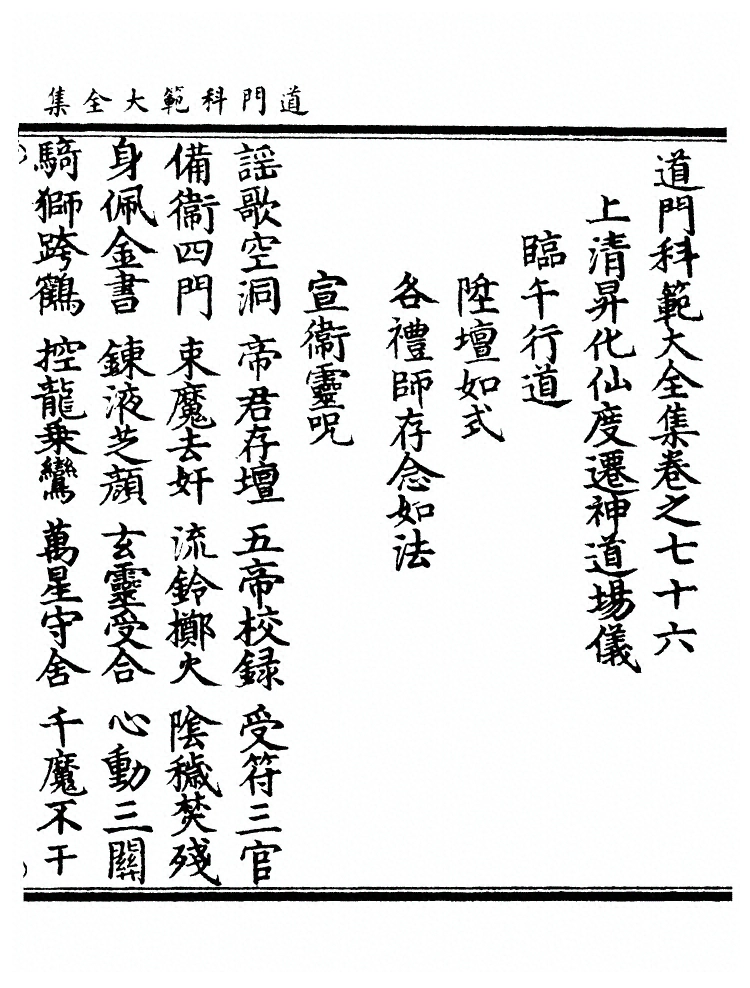 道門科範大全集
道門科範大全集卷之七十六
上清昇化仙度遷神道場儀
臨午行道
陞壇如式
各禮師存念如法
宣衞靈呪
謡歌空洞 帝君存壇 五帝校録 受符三官
備衞四門 束魔去奸 流鈴擲火 陰穢焚殘
身佩金書 錬液芝顔 玄靈受合 心動三關
騎獅跨鶴 控龍乗鸞 萬星守舍 千魔不干